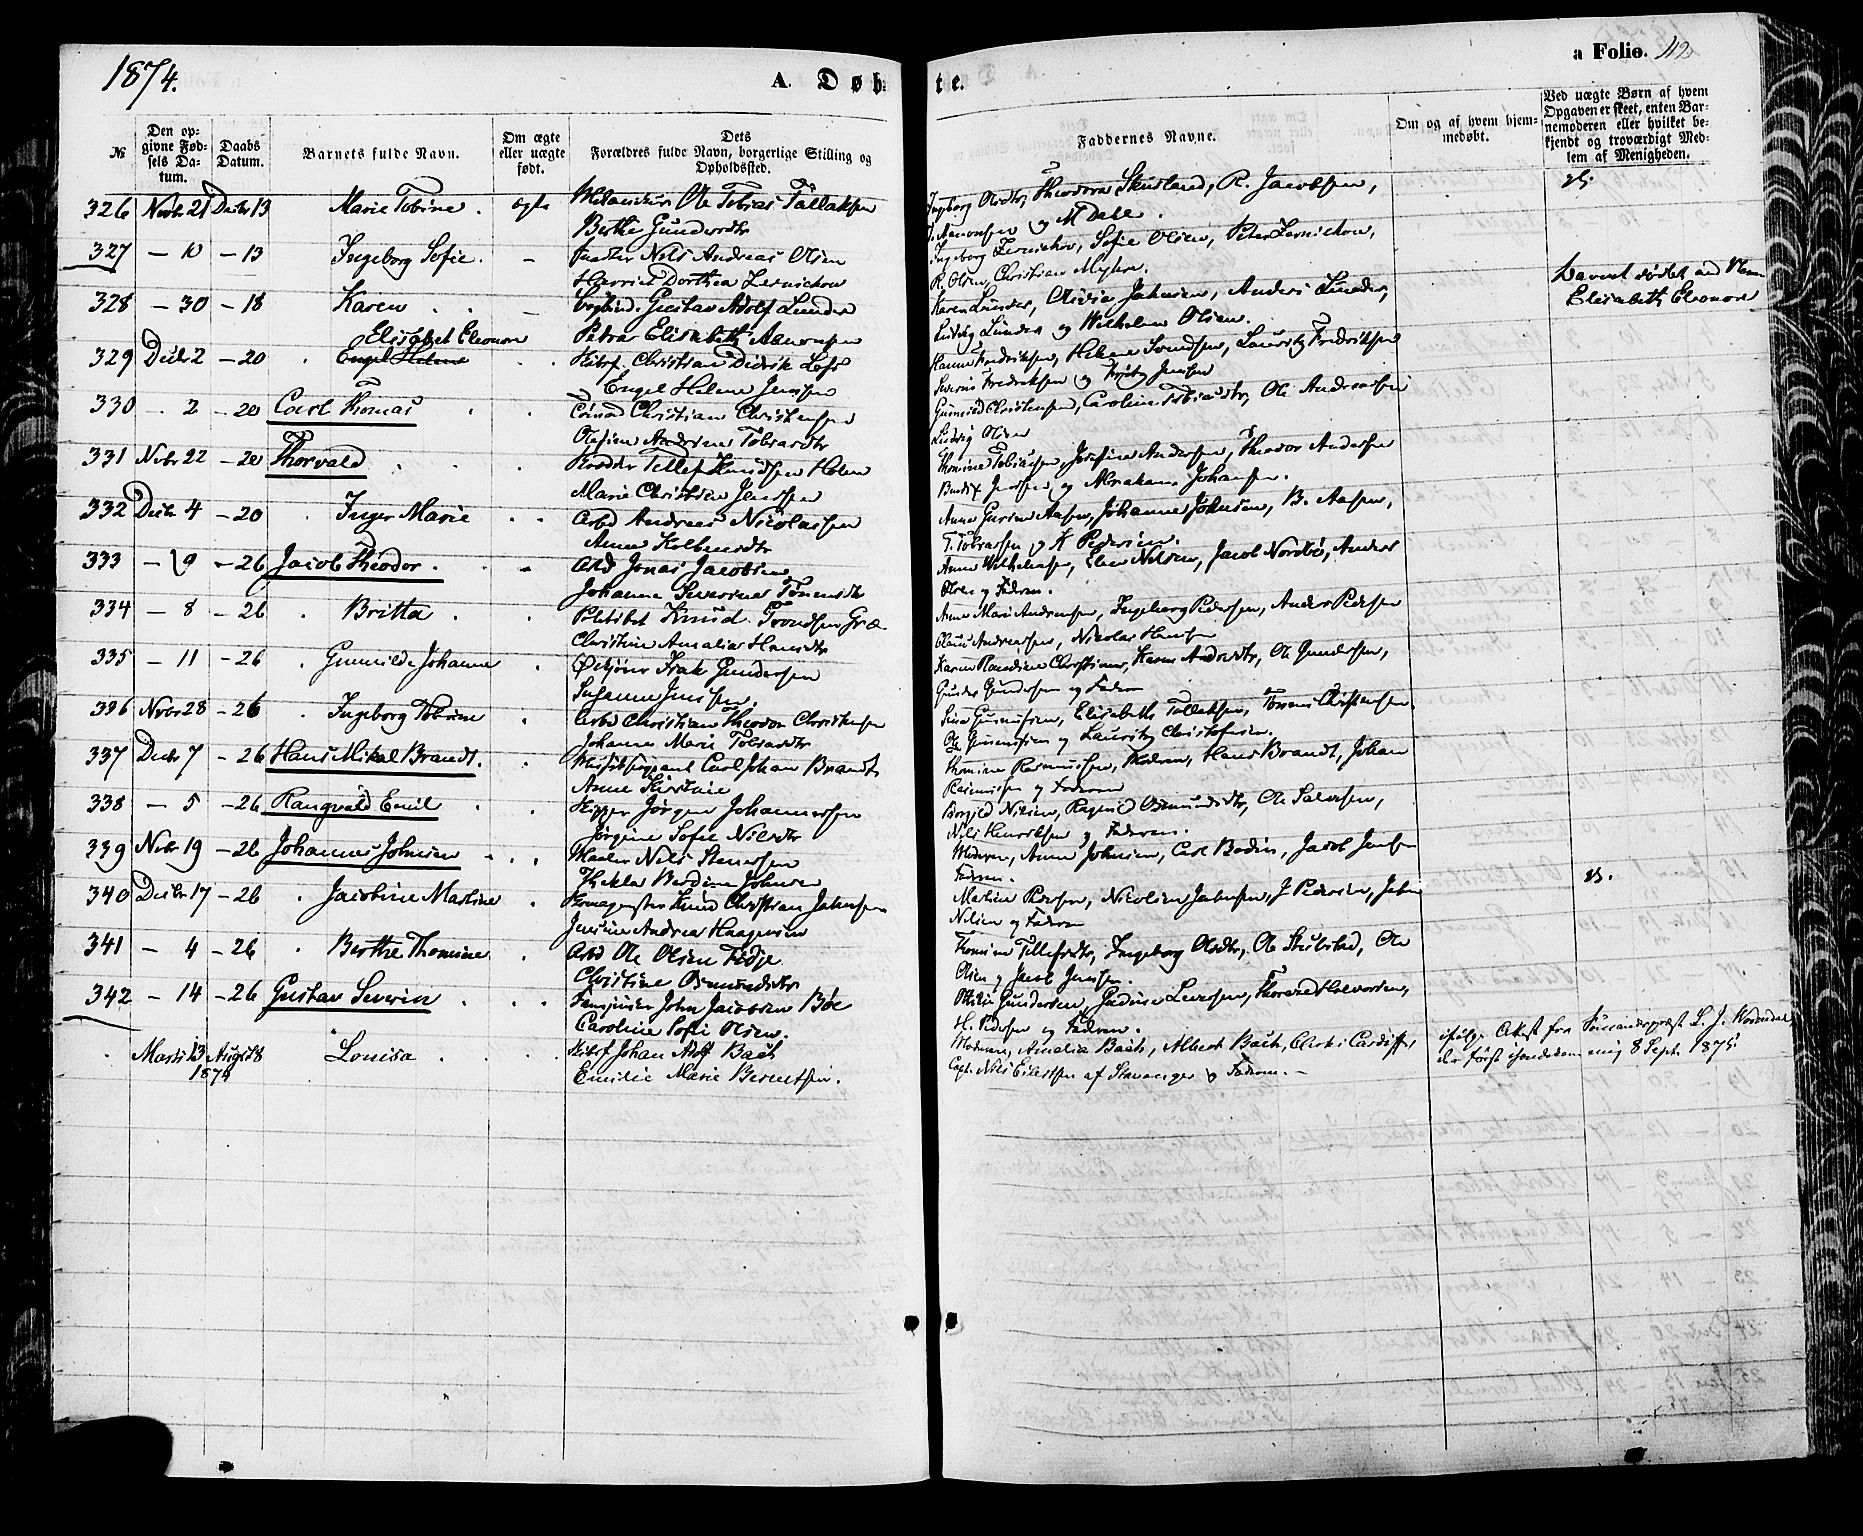 1874.
A. Døb
te.
a Folio. 112
№
Den opgivne Fødsels Datum.
Daabs Datum.
Barnets fulde Navn.
Om ægte eller uægte født.
Dets Forældres fulde Navn, borgerlige Stilling og Opholdssted.
Faddernes Navne.
Om og af hvem hjemmedøbt.
Ved uægte Børn af hvem Opgaven er skeet, enten Barnemoderen eller hvilket bekjendt og troværdigt Medlem af Menigheden.
326 Novbr 21 Decbr 13 Marie Tobine. ægte Ole Tobias Tallaksen
Berthe Gundersdtr
Ingeborg Olsdtr, Theodora Skusland, R. Jacobsen,
og M Dahl.
327 – 10 – 13 Ingeborg Sofie. – Nils Andreas Olsen
Harriet Dorthea Zernichow
Ingeborg Zernichow, Sofie Olsen, Peter Zernichow,
R. Olsen, Christian Myhre.
328 – 30 – 18 Karen – Gustav Adolf Lunder
Petra Elisabeth Aanonsen
Karen Lunder, Olivia Johnsen, Anders Lunder,
Ludvig Lunder og Wilhelm Olsen.
Barnet døbt med Navn
Elisabeth Eleonore
Elisabet Eleonore
329 Decbr 2 – 20 Engel Helene Christian Didrik
Engel Helene Jensen
Hanne Fredriksen, Helene Svendsen, Lauritz Fredriksen
Severin Fredriksen og Jensen
330 – 2 – 20 Carl Thomas Christian Christensen
Olesine Andrine Tobiasdtr
Gunnild Christensen, Caroline Tobiasdtr, Ole Andreassen
Ludvig Olsen
331 Novbr 22 – 20 Thorvald Tellef Knudsen Holm
Marie Christine Jenssen
Thomine Tobiassen, Josefine Andersen, Theodor Andersen
Jenssen og Abraham Johansen.
332 Decbr 4 – 20 Inger Marie Arbd Andreas Nicolaisen
Anne Kolbensdtr
Anne Gurine Aasen, Johanne Johnsen, B. Aasen,
T. Tobiassen og K Pedersen.
333 – 9 – 26 Jacob Theodor. Arbd Jonas Jacobsen
Johanne Severine
Anne Wilhelmsen, Elen Nilsen, Jacob Nordbø, Anders
Olsen og Faderen.
334 – 8 – 26 Britta Politibet Knud Trondsen Græ
Christine Amalia Hansdtr
Anne Marie Andersen, Ingeborg Pedersen, Anders Pedersen
Andreassen, Nicolai Hansen
335 – 11 – 26 Gunnilde Johanne Isak Gundersen
Susanne Jenssen.
Karen Randine Christiansen, Karen Andersdtr, Ole Gundersen,
Gunder Gundersen og Faderen
336 Novbr 28 – 26 Ingeborg Tobine Arbd Christian Theodor Christensen
Johanne Marie Tobiasdtr
Gunnufsen, Elisabeth Tallaksen, Christensen
Ole Gunnufsen og Lauritz Christofersen.
337 Decbr 7 – 26 Hans Mikal Brandt. Carl Johan Brandt
Anne Kirstine
Thomine Rasmussen, Moderen, Hans Brandt, Johan
Rasmussen og Faderen
338 – 5 – 26 Rangvald Emil Skipper Jørgen Johannessen
Jørgine Sofie Nilsdtr
Borgild Nilsen, Ragnild Osmundsdtr, Ole Salvesen,
Nils Henriksen og Faderen.
339 Novbr 19 – 26 Johannes Johnsen Maaler Nils Stenersen
Thekla Berdine Johnsen
Moderen, Anne Johnsen, Carl Bodin, Jacob Jensen
Faderen.
340 Decbr 17 – 26 Jacobine Martine Kornmagaster Knud Christian Johnsen
Jensine Andrea Haagensen
Martine Pedersen, Nicoline Johnsen, J Pedersen, John
Nilsen og Faderen
341 – 4 – 26 Berthe Thomine Arbd Ole Olsen Fidje
Christine Osmundsdtr
Thomine Tellefsdtr, Ingeborg Olsdtr, Ole Skulstad, Ole
Olsen og Jacob Jensen.
342 – 14 – 26 Gustav Severin John Jacobsen Bøe
Caroline Sofie Olsen.
Gundersen, Gadine Levesen, Thorvald Halvorsen,
H. Pedersen og Faderen.
Marts 13 August 8 Louisa Johan Adolf Bach
1874 Emilie Marie Berentsen.
Moderen, Amalia Bach, Albert Bach, Clerk i Cardiff,
Capt. Nils Eilertsen af Stavanger og Faderen. –
ifølge Attest fra Sømandspræst L. J.
der først ihændekom mig 8 Septr 1875